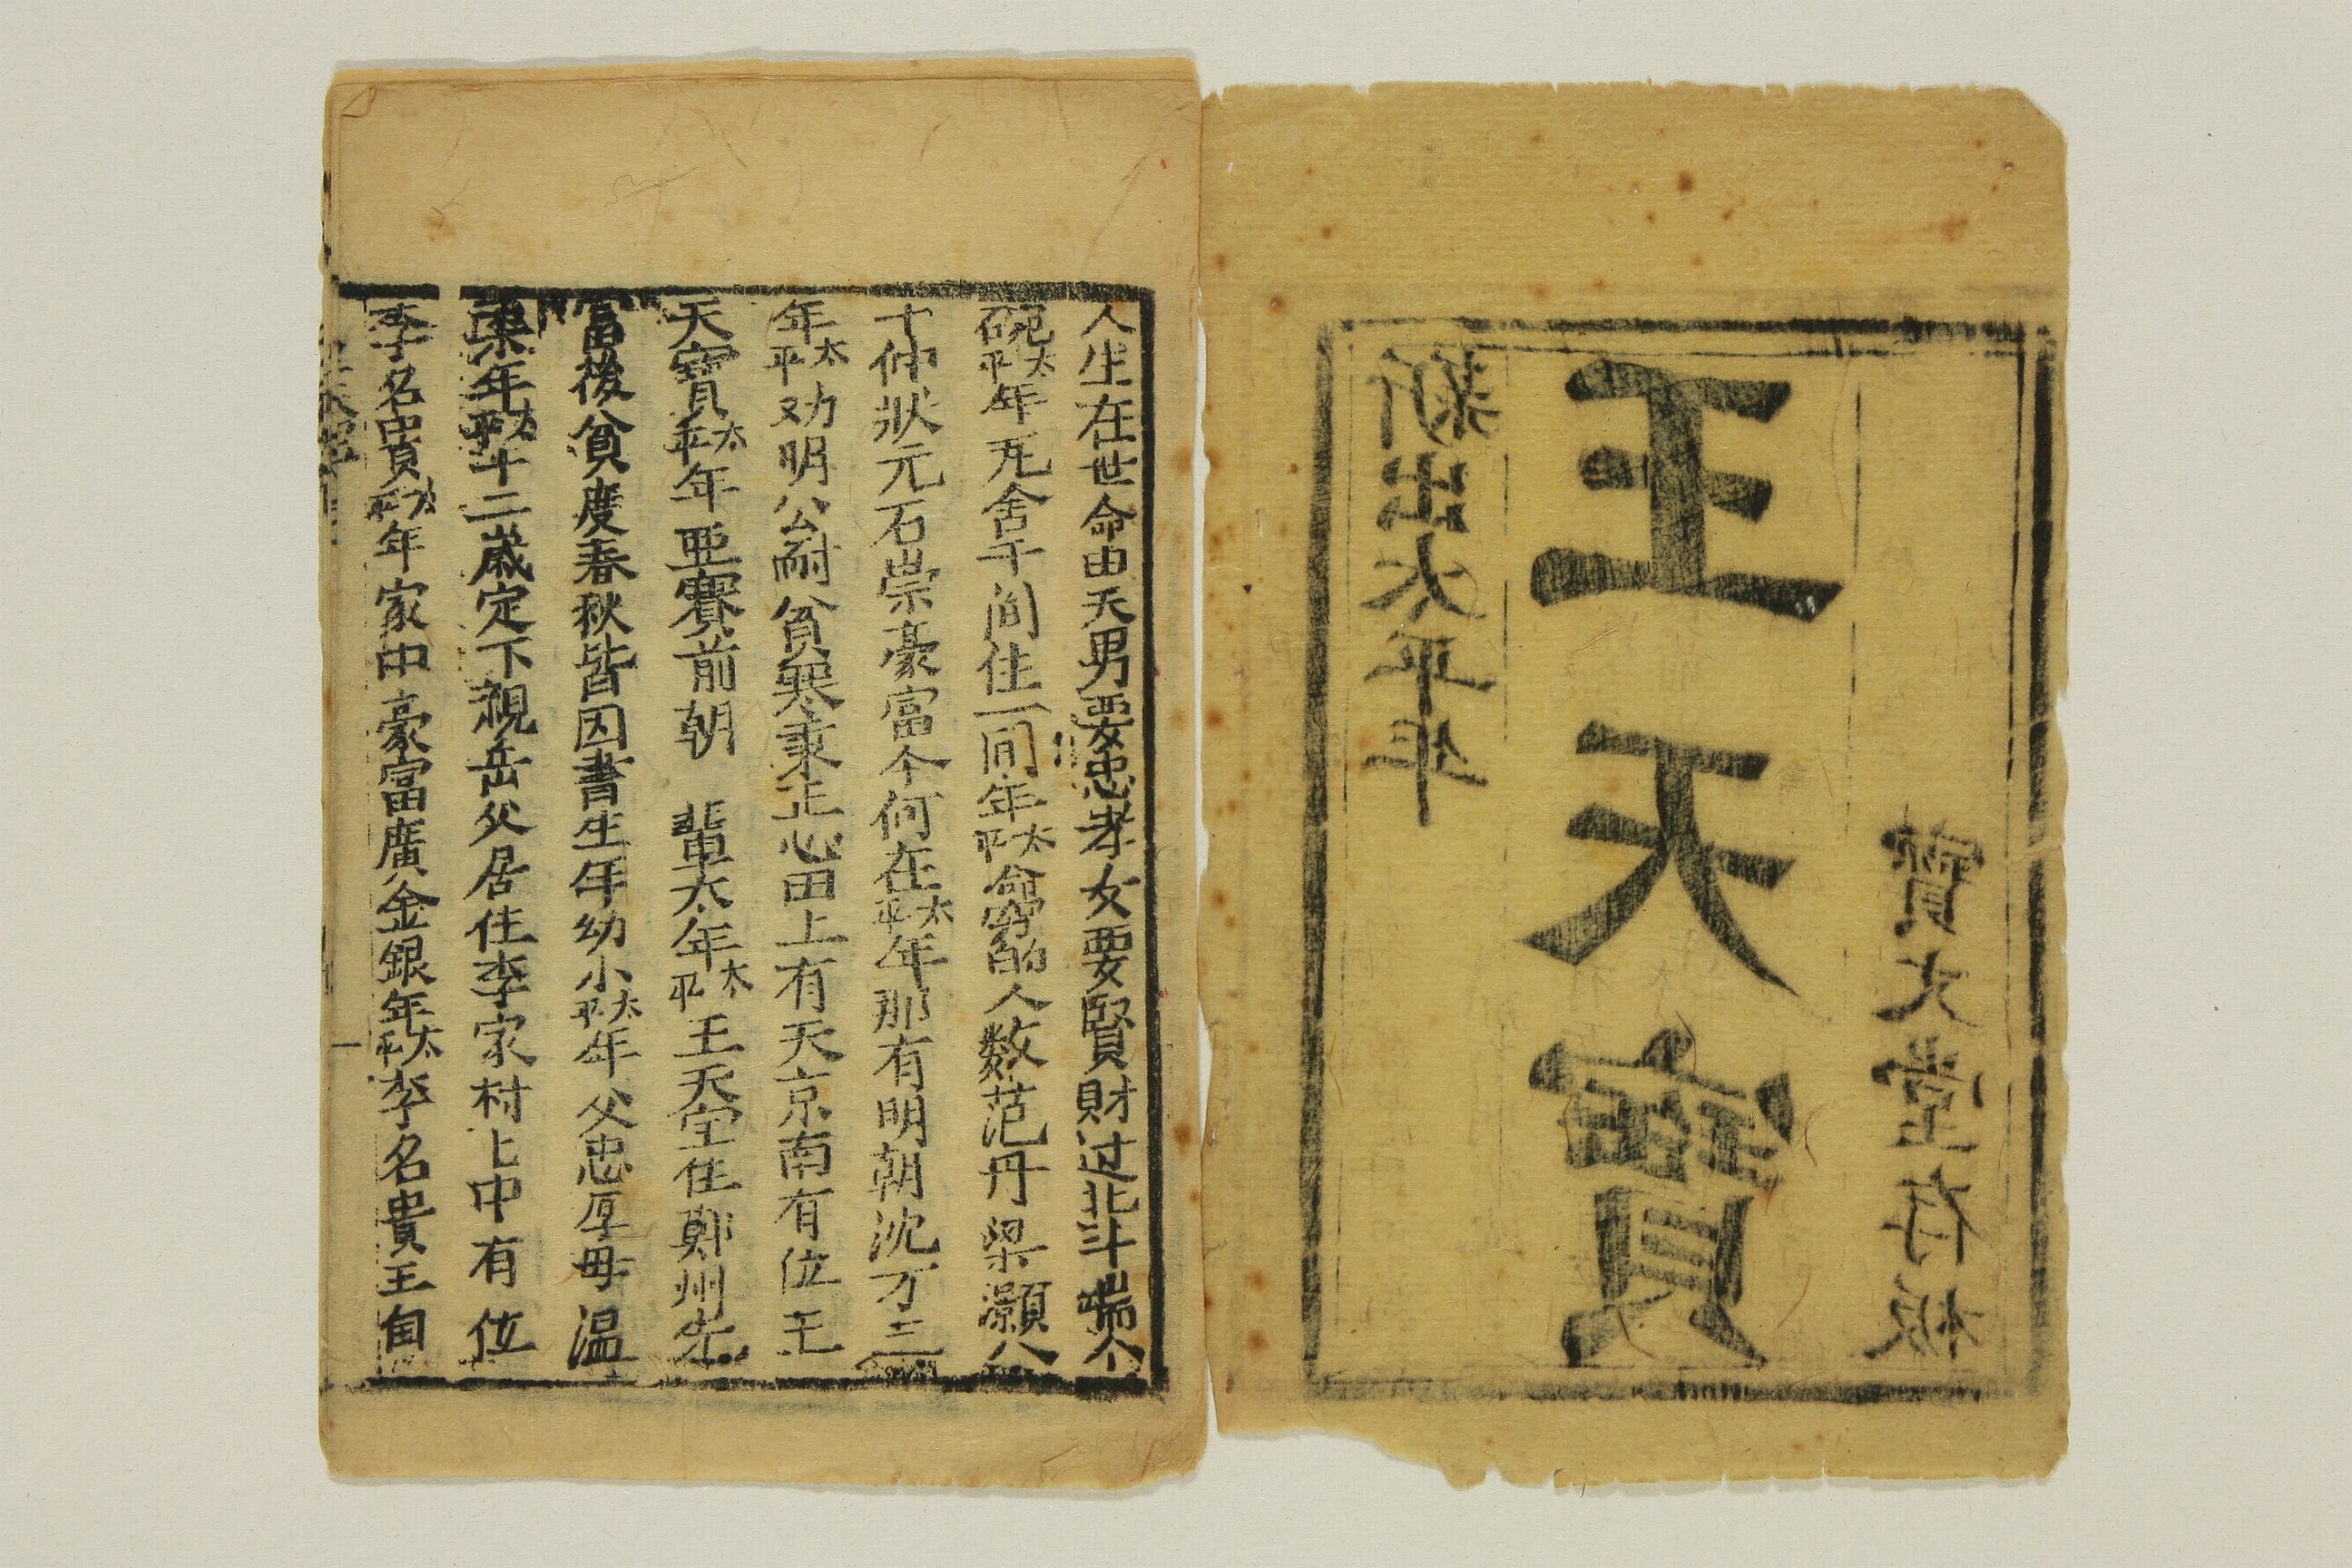 寶文堂存板
王天寶
新出太平年
人生在世命由天男要忠孝女要賢財过北斗喘个
碗太平年死舍千间住一间年太平命窮的人数范丹梁灝八
十仲狀元石崇豪富个何在太平年那有明朝沈万三
年太平劝明公耐貧寒秉正心田上有天京南有位王
天寶太平年亜賽前朝 輩太年太平王天宝住鄭州先
富後貧度春秋皆因書生年幼小太平年父忠厚母温
柔年太平十二歲定下親岳父居住李家村上中有位
李名貴太平年家中豪富廣金銀年太平李名貴王自
一